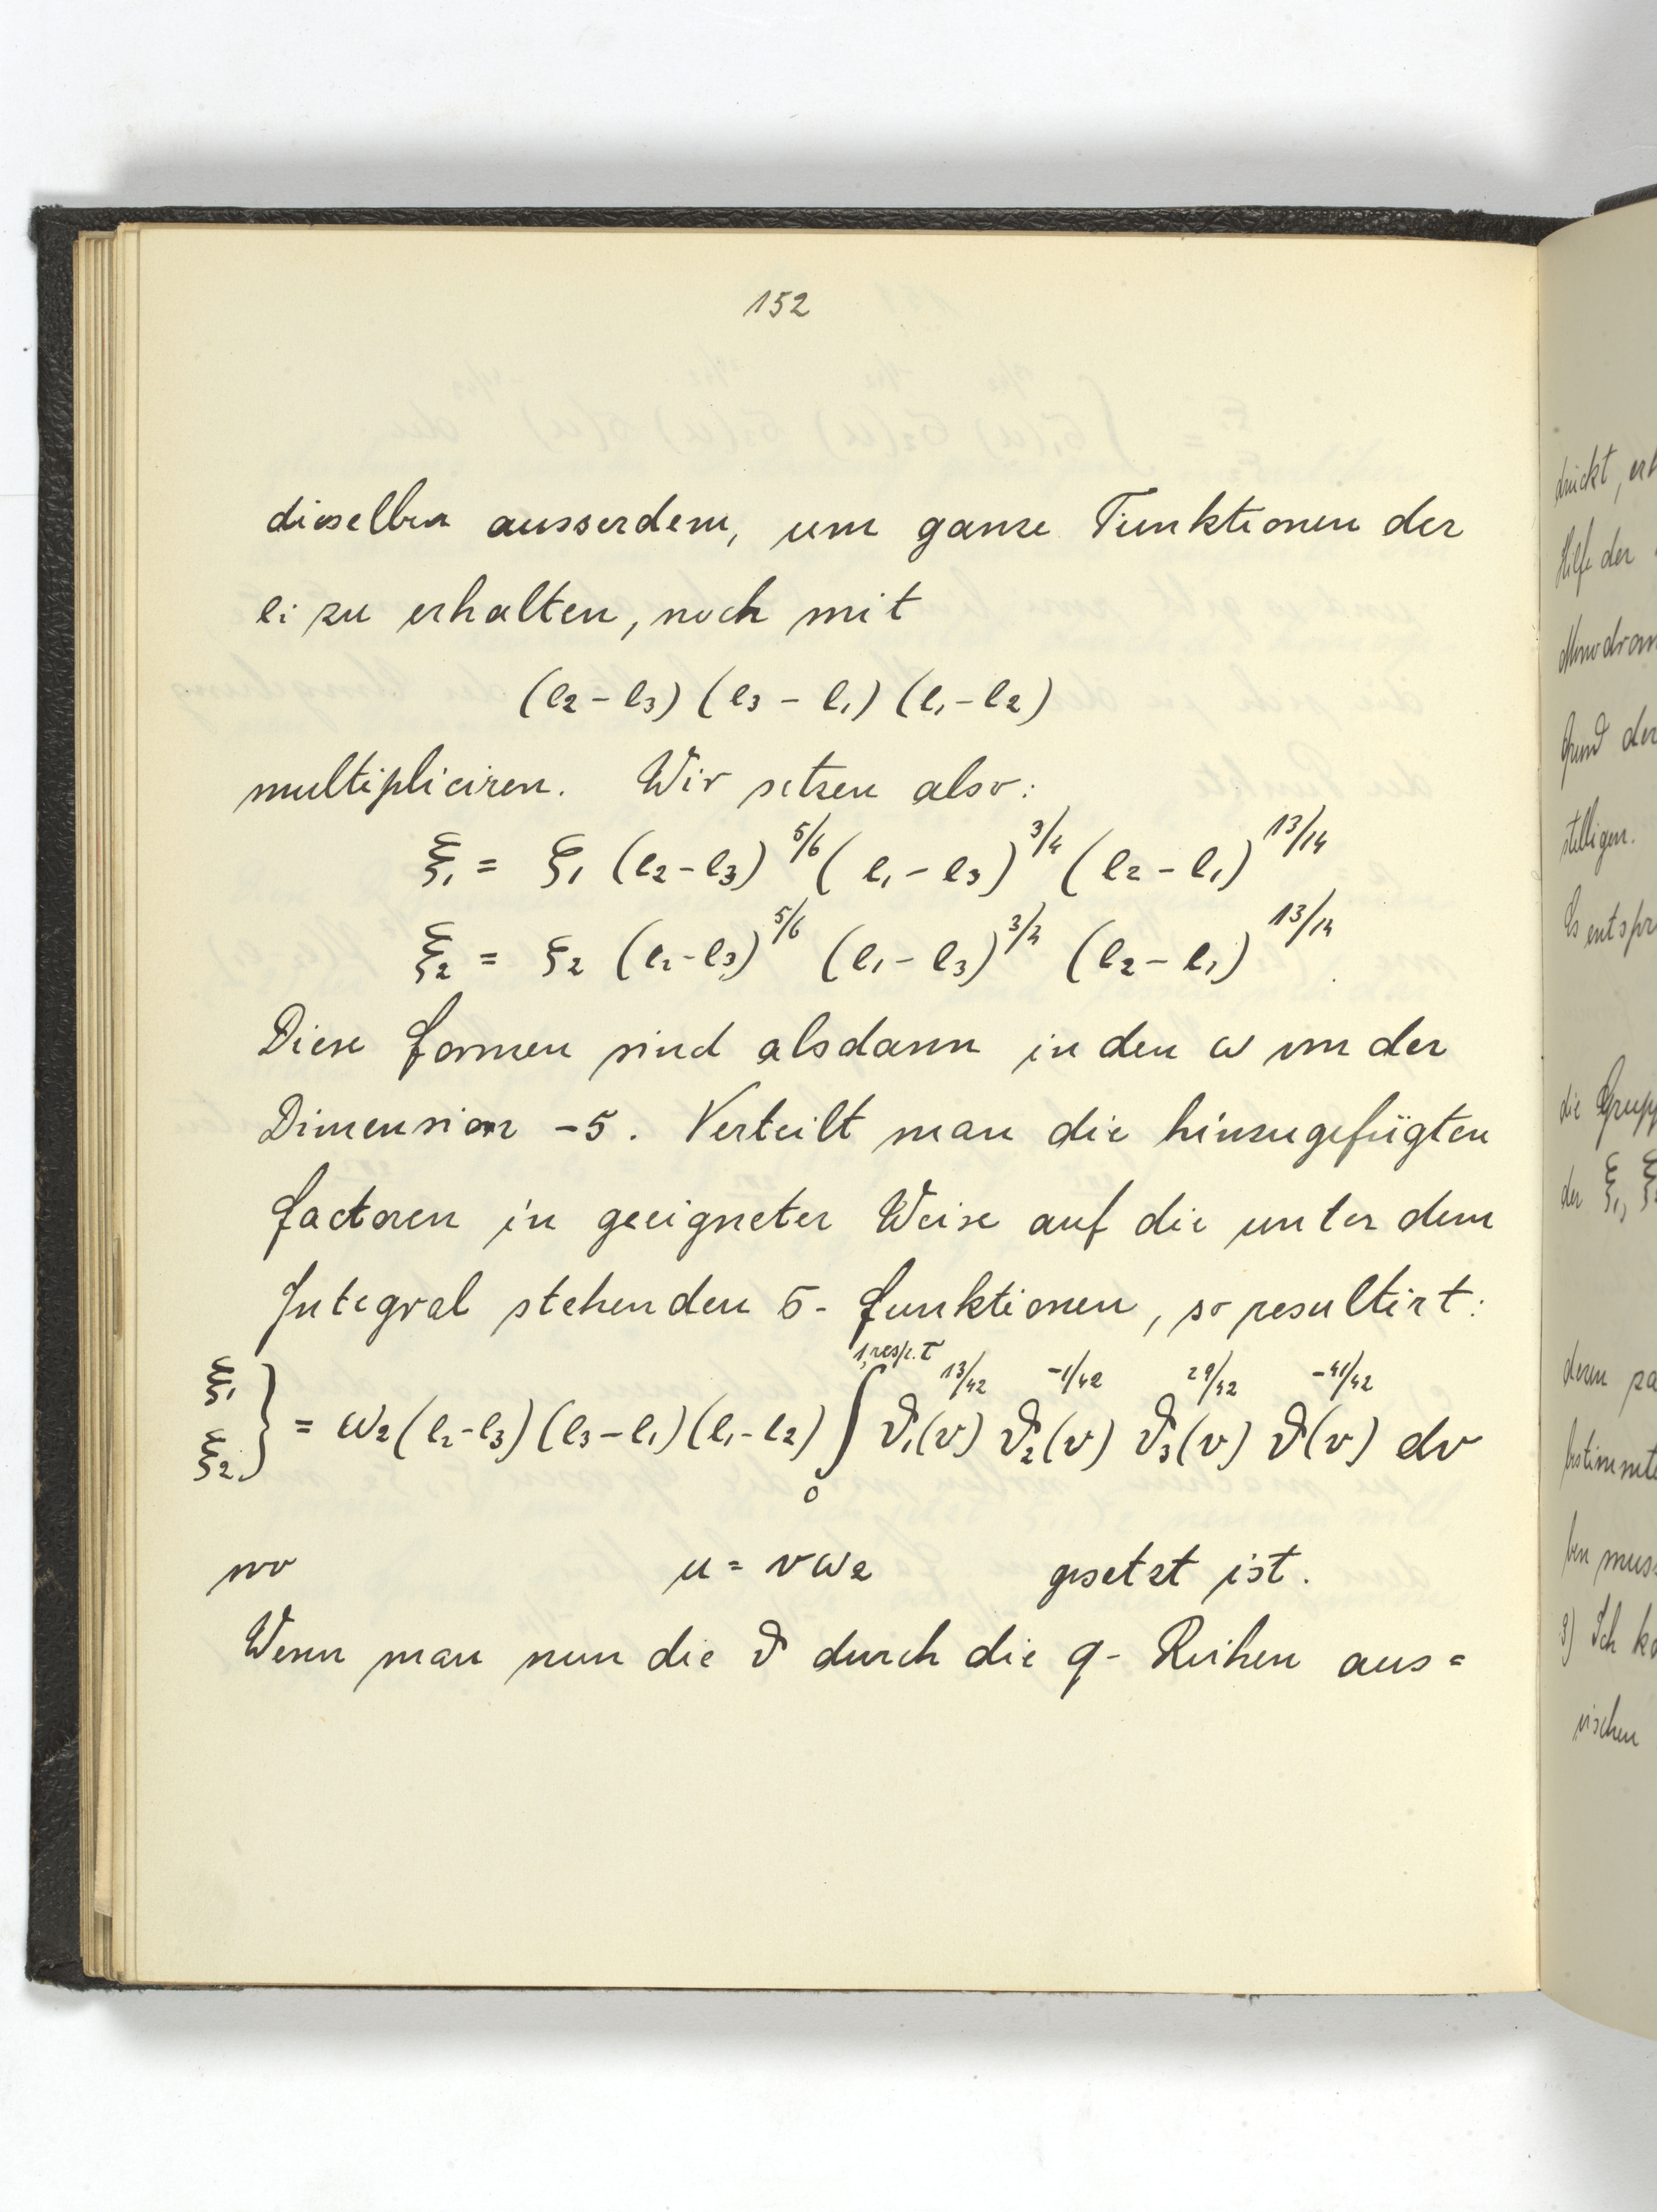 152
dieselben ausserdem, um ganze Funktionen der
ei zu erhalten, noch mit
(e2 - e3) (e3 - e1) (e1 - e2)
multipliciren. Wir setzen also:
Ξ1 = ξ1 (e2 - e3)^5/6 (e1 - e3)^3/4 (e2 - e1)^13/14
Ξ2 = ξ2 (e2 - e3)^5/6 (e1 - e3)^3/4 (e2 - e1)^13/14
Diese Formen sind alsdann in den ω von der
Dimension -5. Verteilt man die hinzugefügten
Factoren in geeigneter Weise auf die unter dem
Integral stehenden σ- Funktionen, so resultirt:
Ξ1 Ξ2 } = ω2 (e2 - e3) (e3 - e1) (e1 - e2) ∫_0^{1, resp. τ} ϑ1(v)^13/42 ϑ2(v)^-1/42 ϑ3(v)^29/42 ϑ(v)^-41/42 dv
wo u = vω2 gesetzt ist.
Wenn man nun die ϑ durch die q- Reihen aus=
drückt, er
Hilfe der
Monodrom
Grund der
stelligen.
Es entspr
die Grupp
der Ξ1, Ξ
deren pa
bestimmte
ben muss
3) Ich ko
ischen